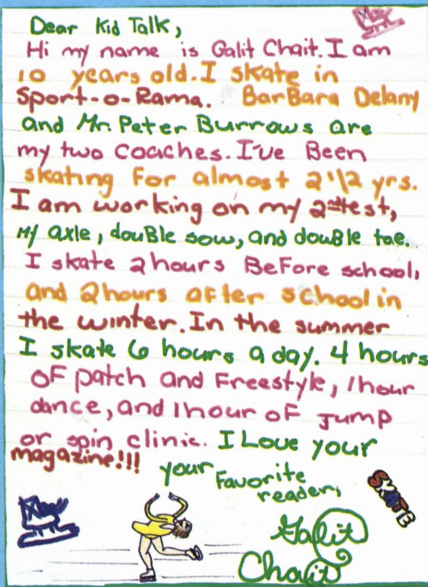 Dear Kid Talk,
Hi my name is Galit Chait. I am
10 years old. I skate in
Sport-o-Rama. BarBara Delany
and Mr. Peter Burrows are
my two coaches. I've Been
skating For almost 2 1/2 yrs.
I am working on my 2nd test,
my axle, douBle sow, and douBle toe.
I skate 2 hours BeFore school,
and 2 hours after school in
the winter. In the summer
I skate 6 hours a day. 4 hours
of patch and Freestyle, 1 hour
dance, and 1 hour of jump
or spin clinic. I Love your
magazine!!!
your Favorite
reader,
Galit
Chait